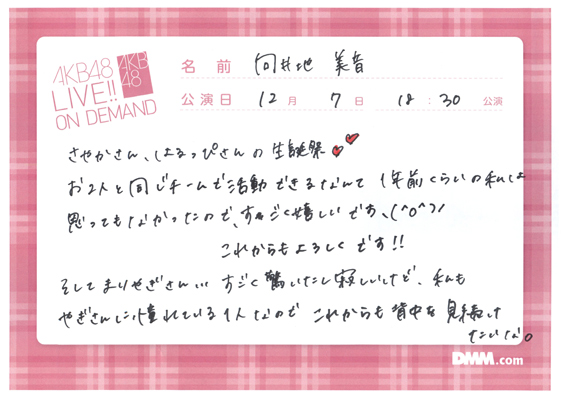 AKB48
LIVE!!
ON DEMAND
AKB
48
名前 向井地 美音
公演日 12月 7日 18:30 公演
さやかさん、はるっぴさんの生誕祭
お2人と同じチームで活動できるなんて 1年前くらいの私は
思ってもなかったので、すっごく嬉しいです、(^o^)/
これからもよろしくです!!
そしてまりやぎさん… すごく驚いたし寂しいけど、私も
やぎさんに憧れている1人なので これからも背中を見続け
たいな。
DMM.com